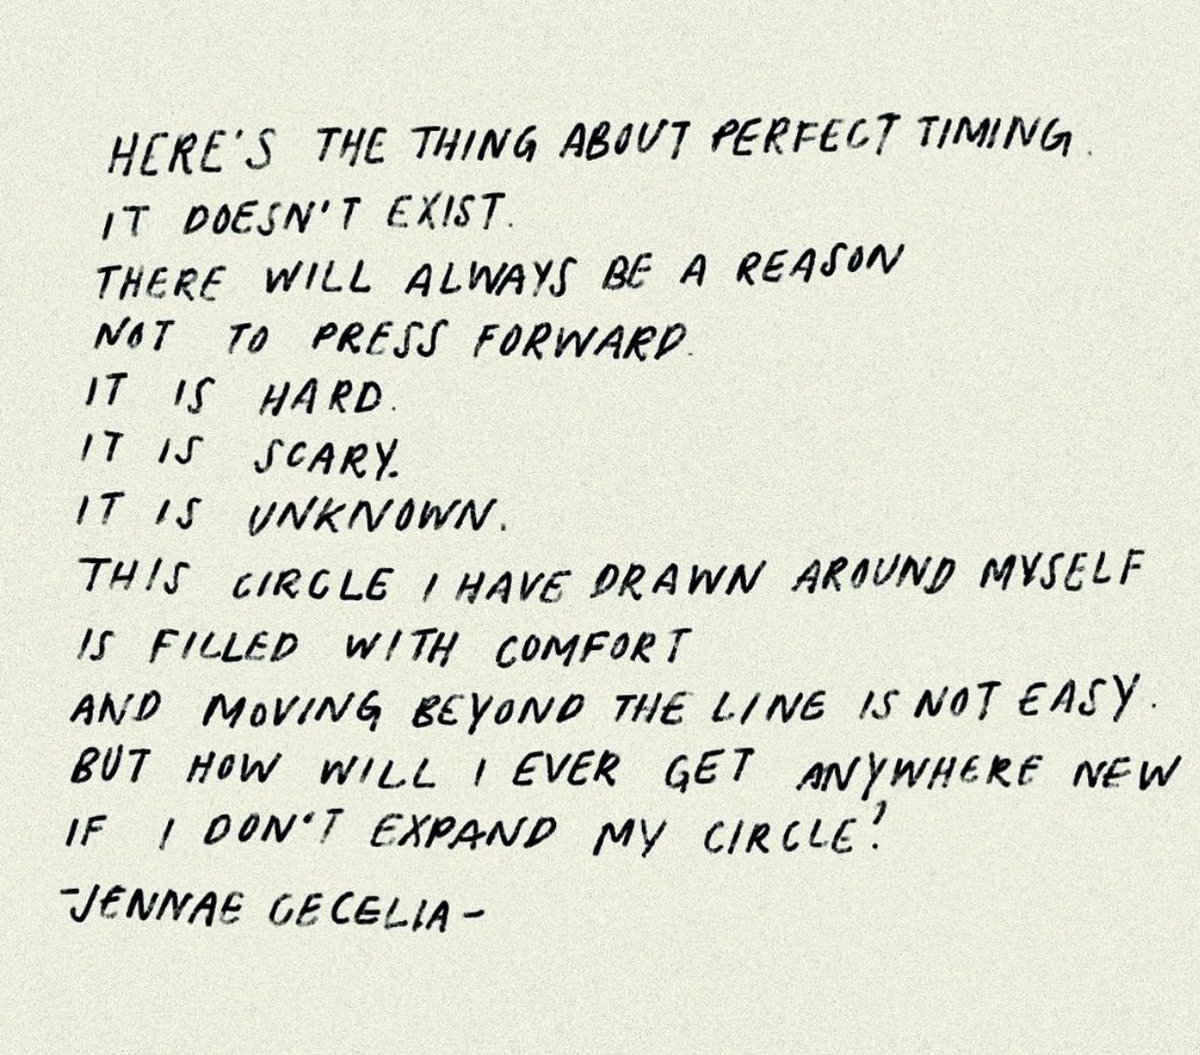 HERE'S THE THING ABOUT PERFECT TIMING.
IT DOESN'T EXIST.
THERE WILL ALWAYS BE A REASON
NOT TO PRESS FORWARD.
IT IS HARD.
IT IS SCARY.
IT IS UNKNOWN.
THIS CIRCLE I HAVE DRAWN AROUND MYSELF
IS FILLED WITH COMFORT
AND MOVING BEYOND THE LINE IS NOT EASY.
BUT HOW WILL I EVER GET ANYWHERE NEW
IF I DON'T EXPAND MY CIRCLE?
-JENNAE CECELIA-